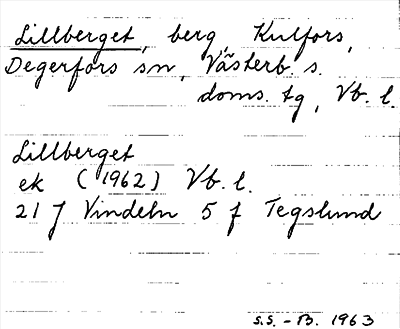 Lillberget, berg, Kulfors,
Degerfors sn, Västerb. s.
doms. tg, Vb. l.
Lillberget
ek (1962) Vb. l.
21 J Vindeln 5 f Tegslund
S.S. - B. 1963